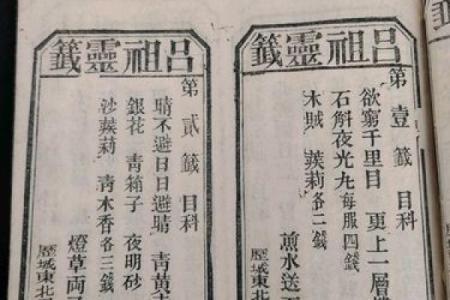 呂祖靈籤
第壹籤目科
欲窮千里目 更上一層
石斛夜光丸 每服四錢
木賊 蒺莉各二錢
煎水送
歷城東北
呂祖靈籤
第貳籤目科
晴不避日日避晴 青黃
銀花 青箱子 夜明砂
沙蒺莉 青木香各三錢
燈草兩
歷城東北